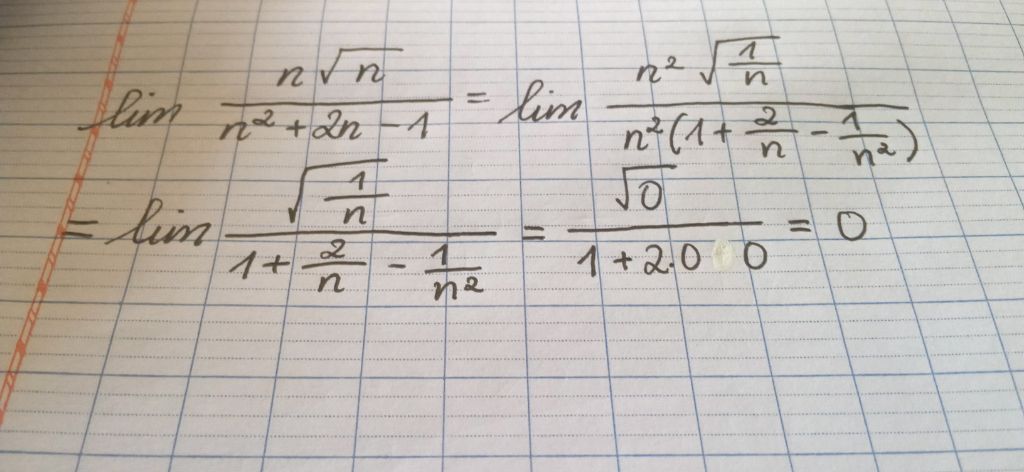 lim n√n / n² + 2n - 1 = lim n² √(1/n) / n²(1 + 2/n - 1/n²)
= lim √(1/n) / 1 + 2/n - 1/n² = √0 / 1 + 2.0 0 = 0